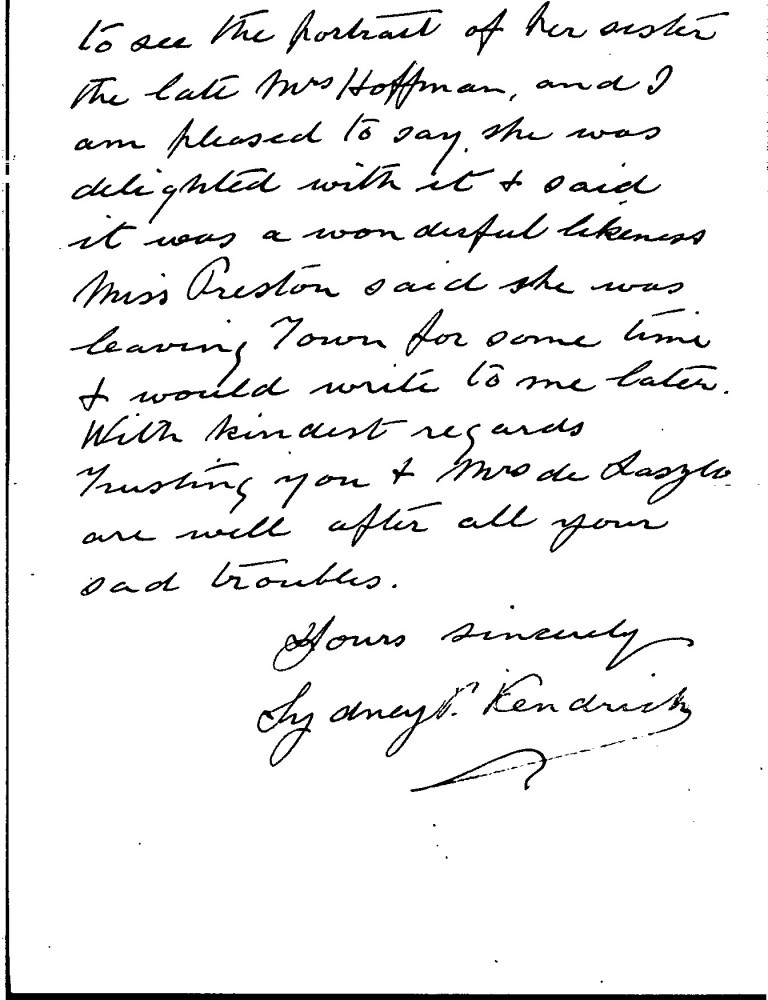 to see the portrait of her sister
the late Mrs Hoffman, and I
am pleased to say, she was
delighted with it & said
it was a wonderful likeness
Miss Preston said she was
leaving Town for some time
& would write to me later.
With kindest regards
Trusting you & Mrs de Laszlo
are well after all your
sad troubles.
Yours sincerely
Sydney P. Kendrick